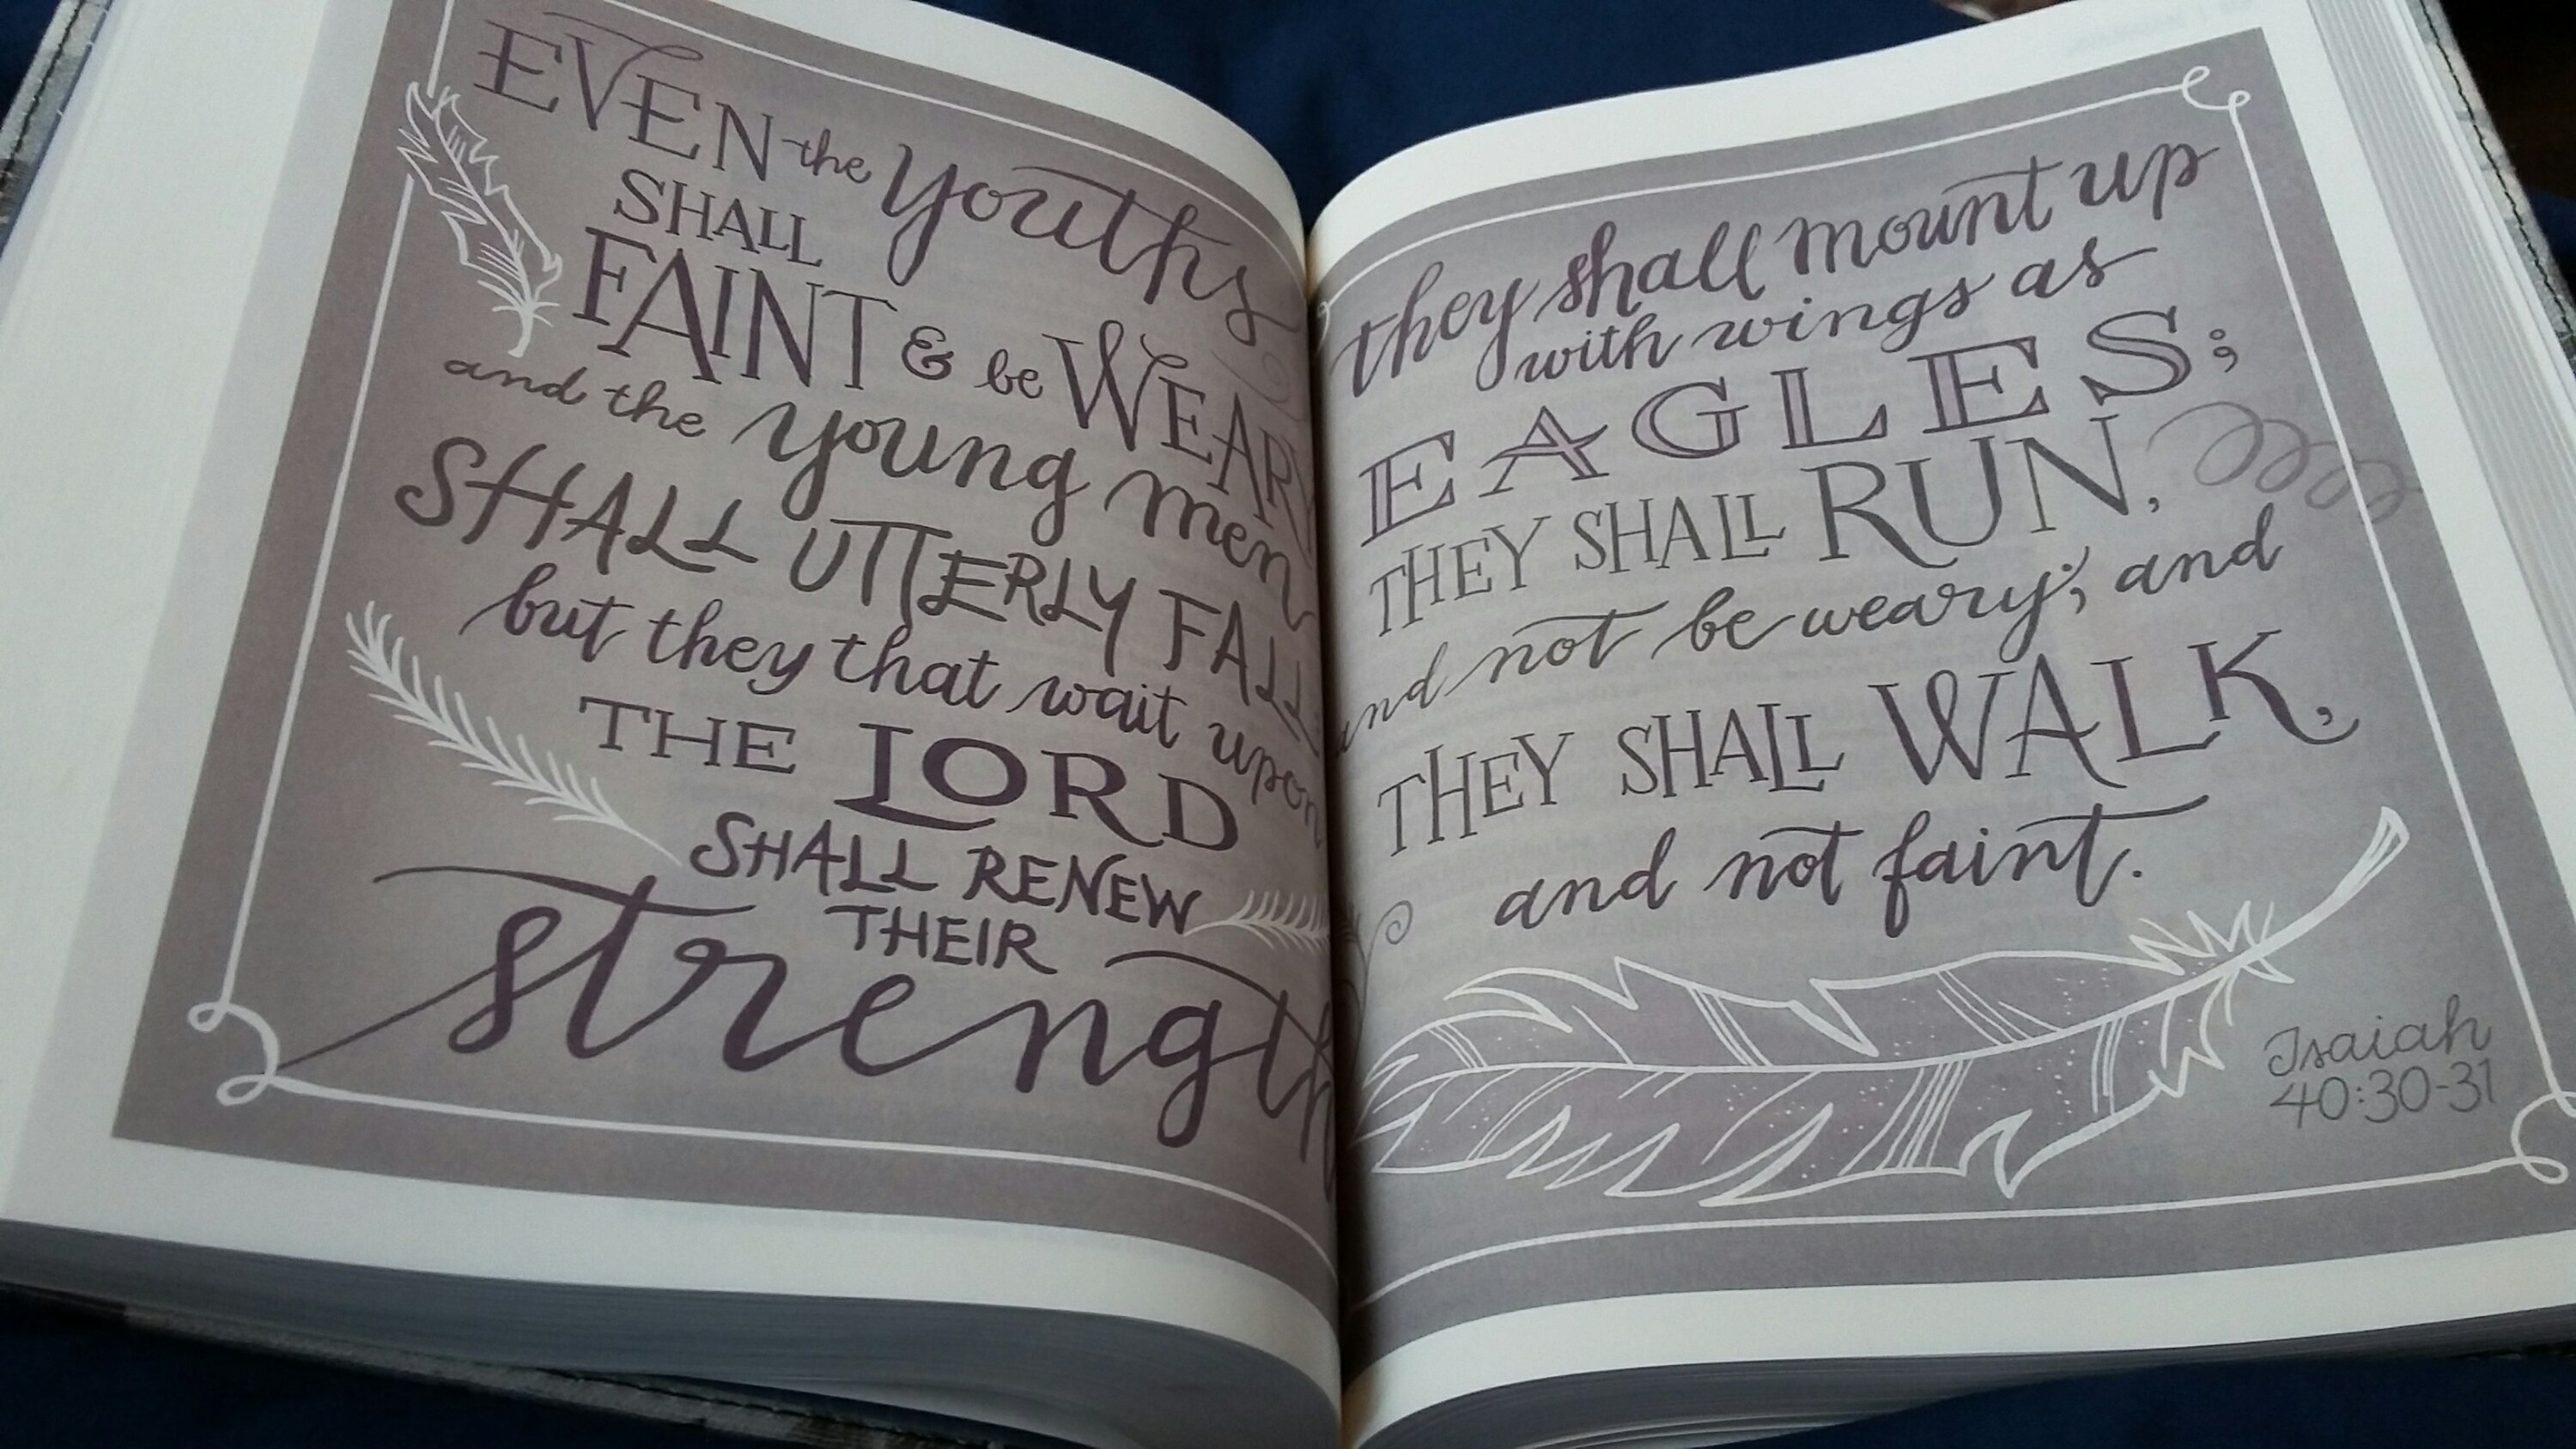 EVEN the youths
SHALL
FAINT & be WEARY
and the young men
SHALL UTTERLY FALL
but they that wait upon
THE LORD
SHALL RENEW
THEIR
strength
they shall mount up
with wings as
EAGLES;
THEY SHALL RUN,
and not be weary; and
THEY SHALL WALK,
and not faint.
Isaiah
40:30-31